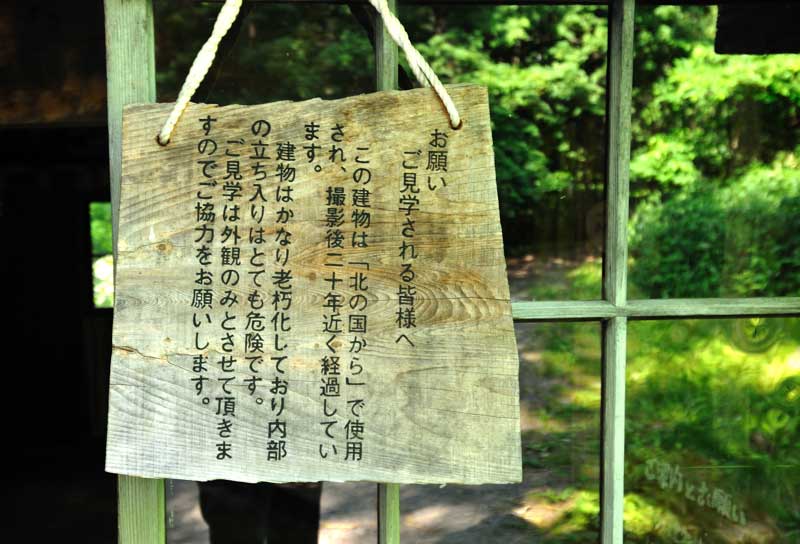 お願い
ご見学される皆様へ
この建物は「北の国から」で使用
され、撮影後二十年近く経過してい
ます。
建物はかなり老朽化しており内部
の立ち入りはとても危険です。
ご見学は外観のみとさせて頂きま
すのでご協力をお願いします。
ご案内とお願い